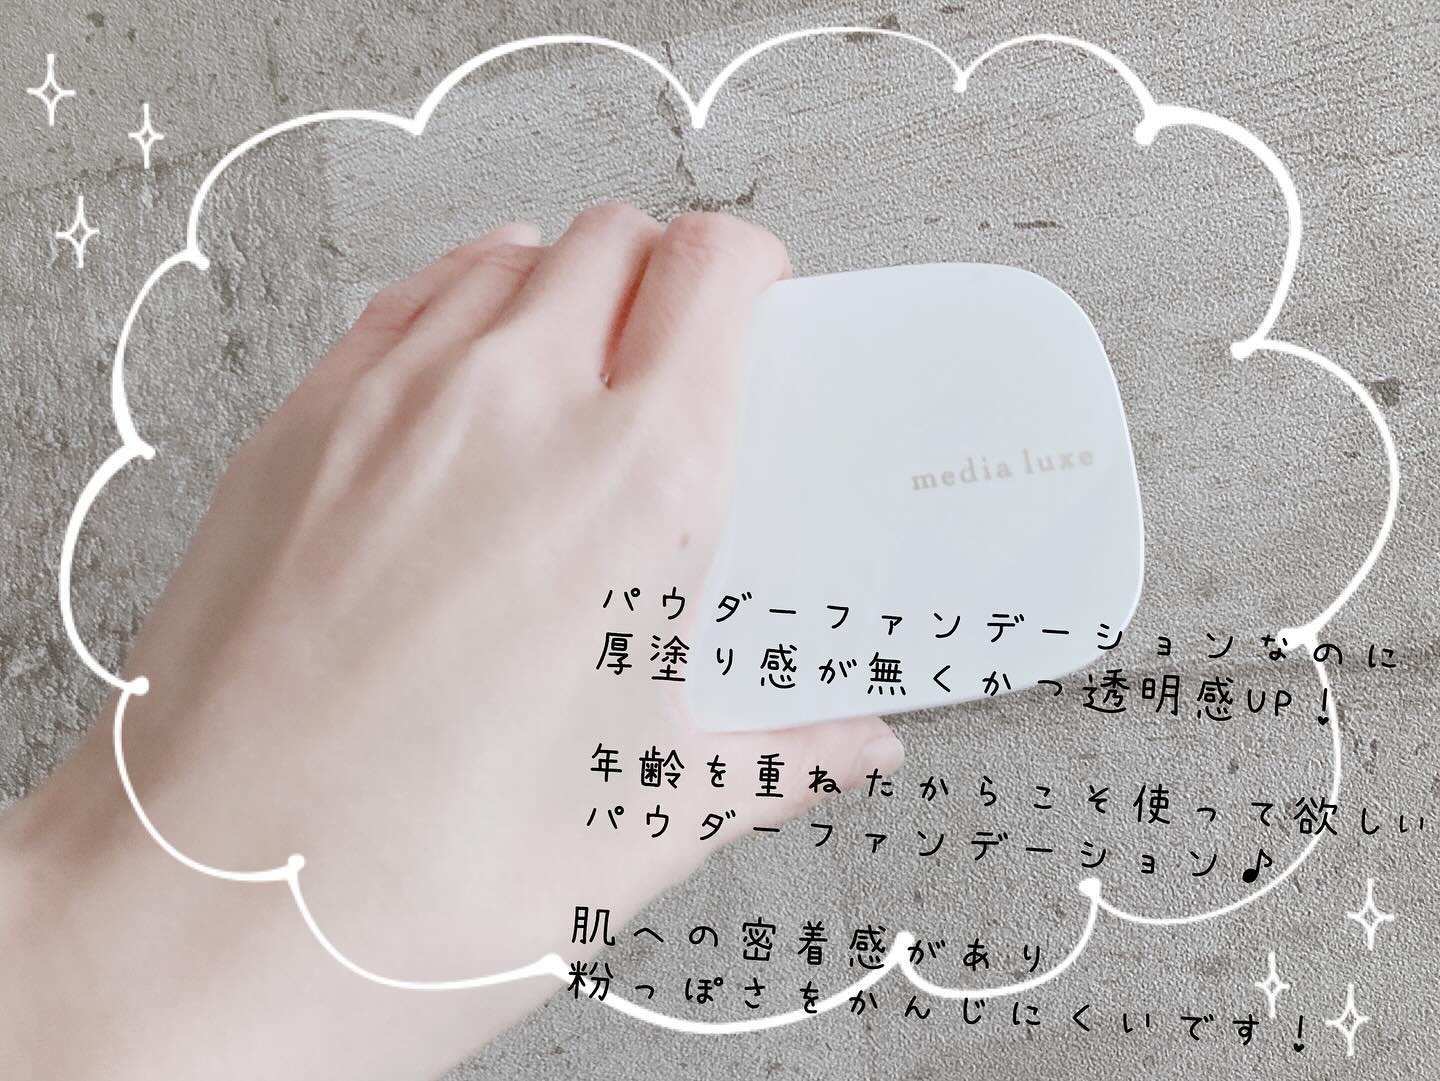 media luxe
パウダーファンデーションなのに
厚塗り感が無くかつ透明感UP!
年齢を重ねたからこそ使って欲しい
パウダーファンデーション♪
肌への密着感があり
粉っぽさをかんじにくいです!